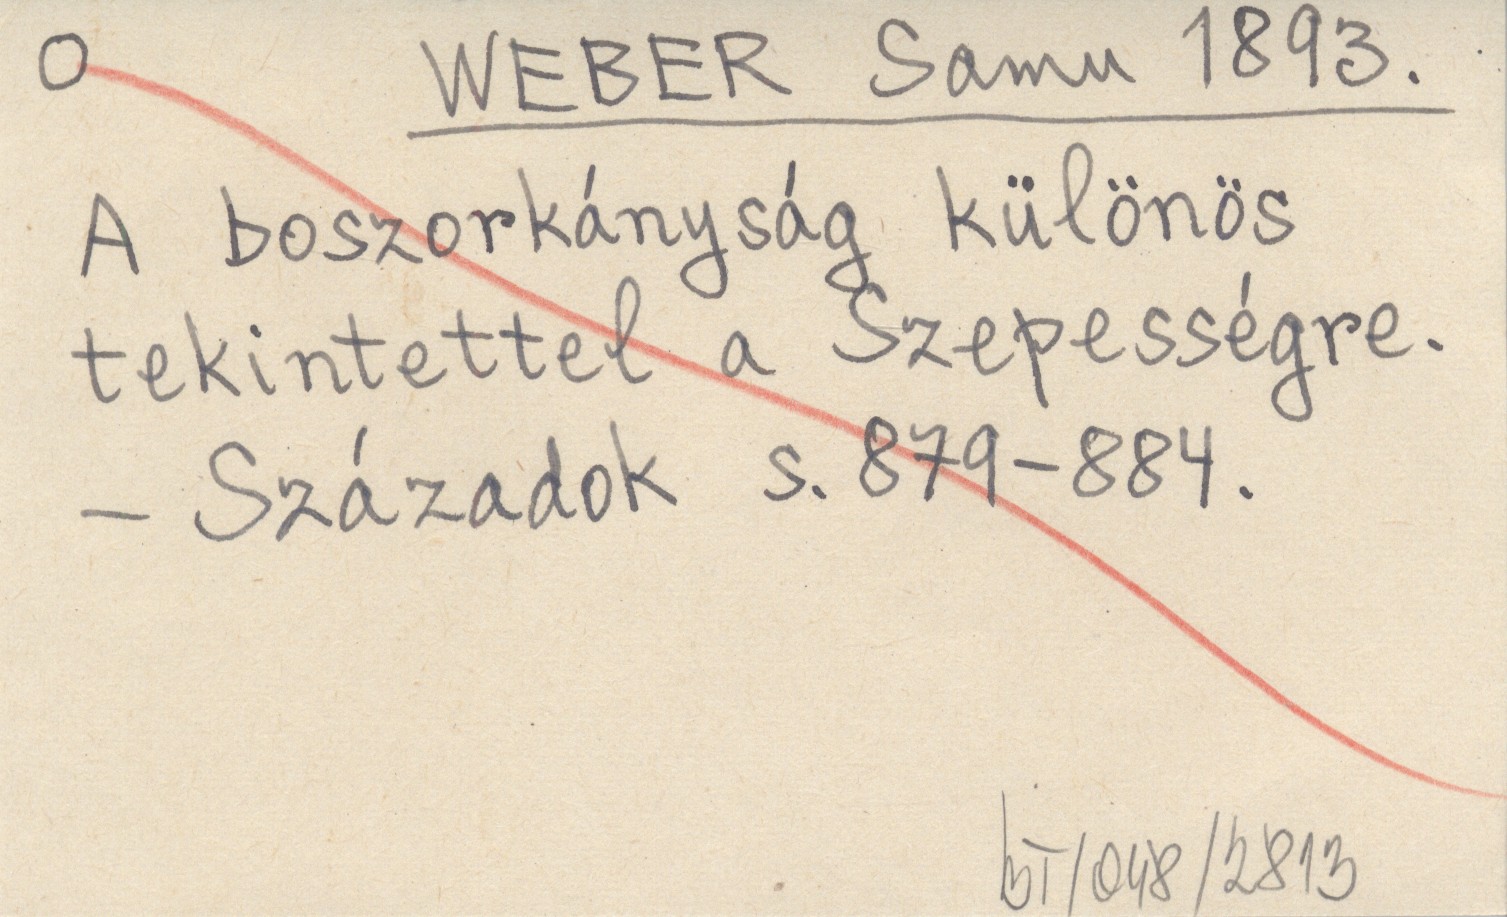 O WEBER Samu 1893.
A boszorkányság különös
tekintettel a Szepességre.
- Századok s. 879-884.
bT/048/2813